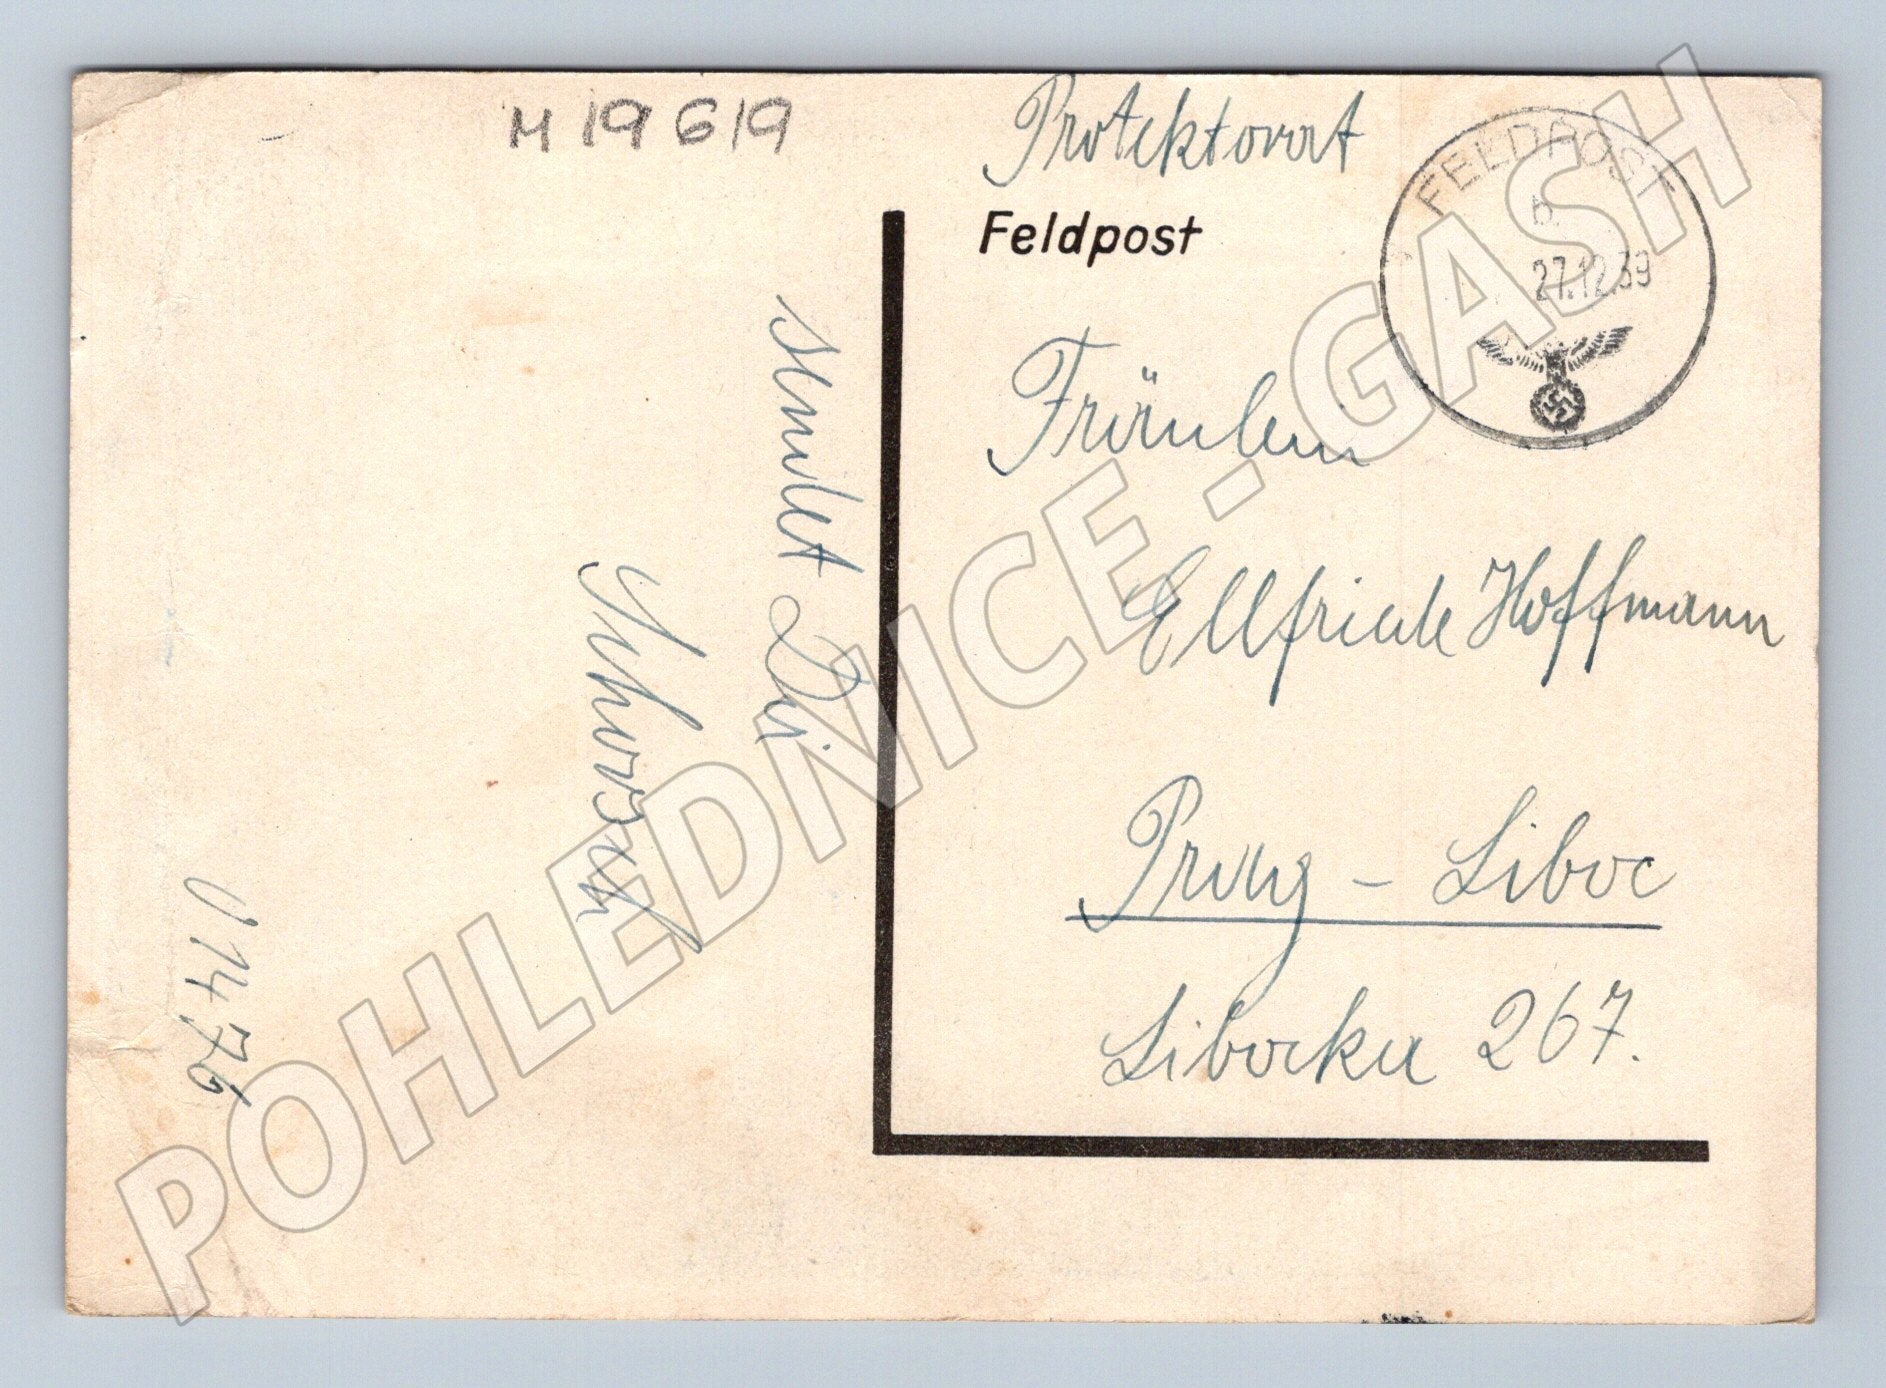 M 19 619
Protektorat
Feldpost
FELDPOST
b
27.12.39
Fräulein
Ellfriede Hoffmann
Prag - Liboc
Libocka 267.
sendet Dir
Schorsch
01476
POHLEDNICE - GASH